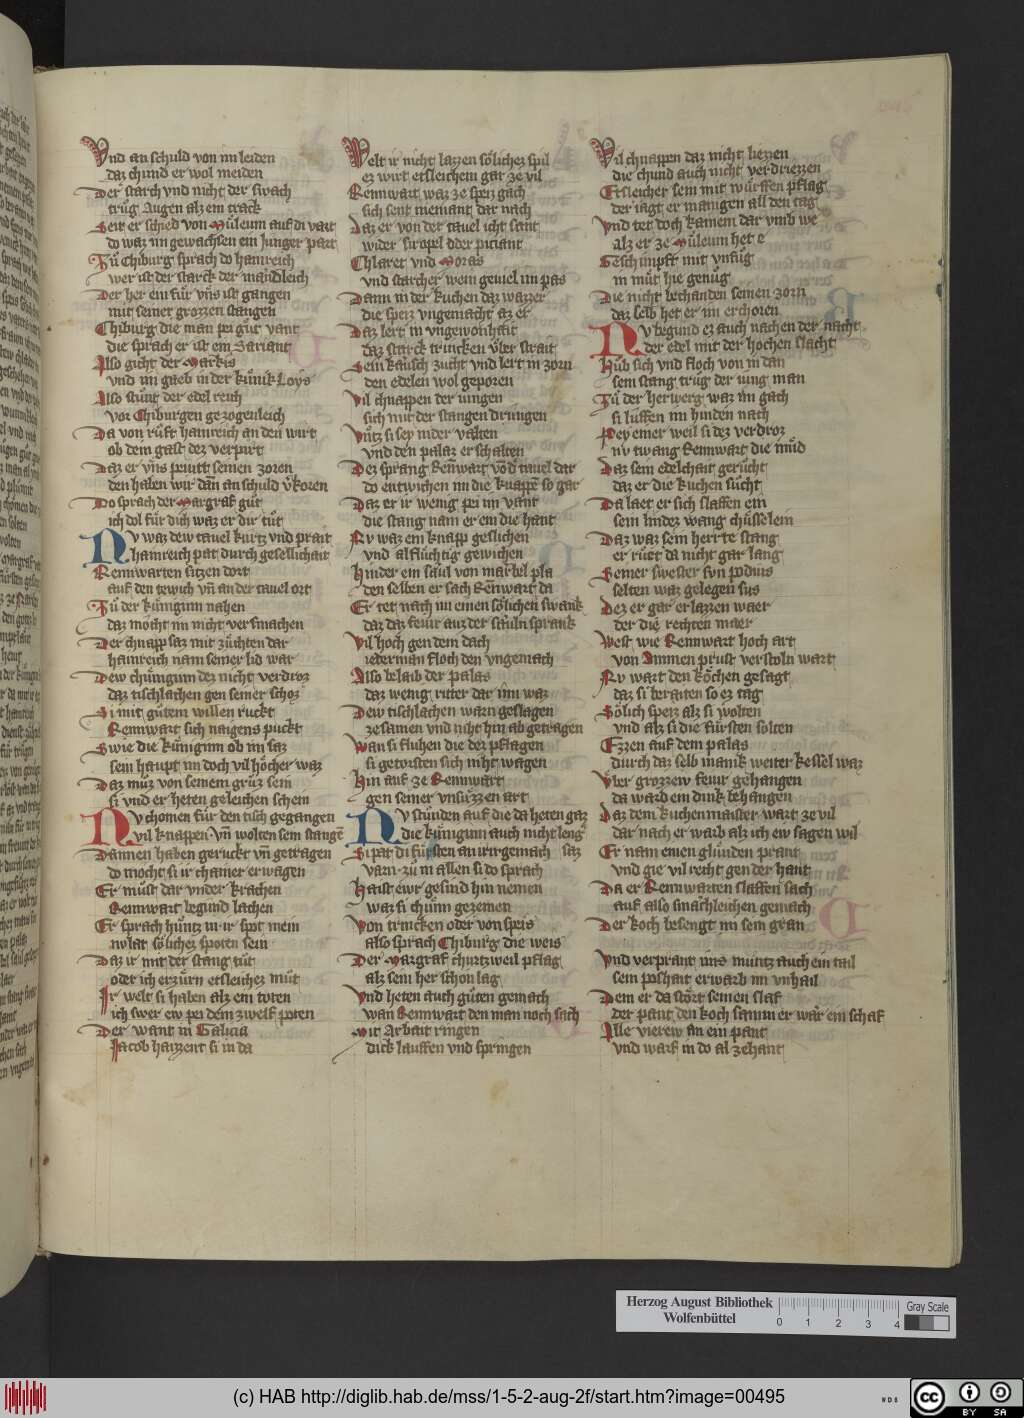 Vnd an schuld von im leiden
daz chund er wol meiden
Der starch vnd nicht der swach
trůg Augen alz ein track
Seit er schied von Můleum auf di vart
do waz im gewachsen ein Junger part
Zů chiburg sprach do hamreich
wer ist der starck der mandleich
Der her ein fůr vns ist gangen
mit seiner grozzen stangen
Chiburg die man pei gůt vant
die sprach er ist ein Sariant
Also gicht der Markis
vnd im gaeb in der kůnik Loys
Also stůnt der edel reich
vor Chiburgen gezogenleich
Da von růft hamreich an den wirt
ob dem gast dez verpirt
Daz er vns prutt seinen zoren
den haben wir dan an schuld v̊koren
Do sprach der Margraf gůt
ich dol fůr dich waz er dir tůt
Nv waz dew tauel kurtz vnd prait
hamreich pat durch gesellichait
Rennwarten sitzen dort
auf den tewich vn̄ an der tauel ort
Zů der kůnigunn nahen
daz mocht im nicht versmachen
Der chnapp saz mit zůchten dar
hamreich nam seiner lid war
Dew chůnigunn dez nicht verdroz
daz tischlachen gen seiner schoz
Si mit gůtem willen ruckt
Rennwart sich naigens puckt
Swie die kůnigunn ob im saz
sein haupt im doch vil hȯcher waz
Daz můz von seinem grůz sein
si vnd er heten geleichen schein
Nv chomen fůr den tisch gegangen
vil knappen vn̄ wolten sein stangē
Dannen haben geruckt vn̄ getragen
do mocht si ir chainer erwagen
Er můst dar vnder krachen
Rennwart begund lachen
Er sprach hůntz ir ir spot mein
nv lat sȯlichez spoten sein
Daz ir mit der stang tůt
oder ich erzůrn etsleichez můt
Ir welt si haben alz ein toten
ich swer ew pei dem zwelf poten
Der want in Galicia
Jacob haizzent si in da
Welt ir nicht lazzen sȯlichez spil
ez wirt etsleichem gar ze vil
Rennwart waz ze speiz gach
sich sent niemant dar nach
Daz er von der tauel icht sant
wider siropel oder piciant
Chlaret vnd Moras
vnd starcher wein geuiel im pas
Dann in der kuchen daz wazzer
die speiz vngemacht az er
Daz lert in vngewonhait
daz starck trincken v̇ber strait
Sein kausch zucht vnd lert in zorn
den edelen wol geporen
Vil chnappen der iungen
sich mit der stangen drungen
Vntz si sey nider valten
vnd den palaz erschalten
Dez sprang Rēnwart vō d̊ tauel dar
do entwichen im die knappē so gar
Daz er ir wenig pei im vant
die stang nam er ein die hant
Nv waz ein knapp geslichen
vnd al flůchtig gewichen
Hinder ein saul von marbel pla
den selben er sach Rēnwart da
Er tet nach im einen sȯlichen swank
daz daz feuir auz der sauln sprank
Vil hoch gen dem dach
iederman floch den vngemach
Also belaib der palas
daz wenig ritter dar inn waz
Dew tischlachen warn geslagen
zesamen vnd niht hin ab getragen
Wan si fluhen die der pflagen
si getorsten sich niht wagen
Hin auf ze Rennwart
gen seiner vnsůzzen art
Nv stůnden auf die da heten gaz
die kůnigunn auch nicht leng
Si pat di fůrsten an irr gemach saz
varn zů in allen si do sprach
Haist ewr gesind hin nemen
waz si chůnn gezemen
Von trincken oder von speis
also sprach Chiburg die weis
Der Margraf churtzweil pflag
alz sein her schon lag
Vnd heten auch gůten gemach
wan Rennwart den man noch sach
Mit Arbait ringen
dick lauffen vnd springen
Vil chnappen daz nicht liezzen
die chund auch nicht verdriezzen
Etsleicher sein mit wůrffen pflag
der iagt er manigen all den tag
Vnd tet doch kainem dar vmb we
alz er ze Můleum het e
Geschimpft mit vnfůg
in můt hie genůg
Die nicht bechanden seinen zorn
daz selb het er im erchorn
Nv begund ez auch nachen der nacht
der edel mit der hochen slacht
Hůb sich vnd floch von in dan
sein stang trůg der iung man
Zů der herwerg waz im gach
si luffen im hinden nach
Pey einer weil si dez verdroz
nv twang Rennwart die můd
Daz sein edelchait gerůcht
daz er die kuchen sůcht
Da laet er sich slaffen ein
sein lindez wang chůsselein
Daz waz sein herrte stang
er růet da nicht gar lang
Seiner swester svn podius
selten waz gelegen sus
Dez er gar erlazzen waer
der die rechten maer
West wie Rennwart hoch art
von Ammen prust verstoln wart
Nv wart den kȯchen gesagt
daz si beraiten so ez tag
Sȯlich speiz alz si wolten
vnd alz si die fürsten solten
Ezzen auf dem palas
durch daz selb manik weiter kessel waz
V̇ber grozzew feuir gehangen
da ward ein dink behangen
Daz dem kuchenmaister wart ze vil
dar nach er warb alz ich ew sagen wil
Er nam einen glůnden prant
vnd gie vil recht gen der hant
Da er Rennwarten slaffen sach
auf also smachleichen gemach
Der koch besengt im sein gran
Vnd verprant ims muntz auch ein tail
sein poshait erwarb im vnhail
Dem er da stȯrt seinen slaf
der pant den koch samm er wår ein schaf
Alle vierew an ein pant
vnd warf in do al zehant
Herzog August Bibliothek
Wolfenbüttel
0 1 2 3 4
Gray Scale
(c) HAB http://diglib.hab.de/mss/1-5-2-aug-2f/start.htm?image=00495
WDB
CC
BY SA